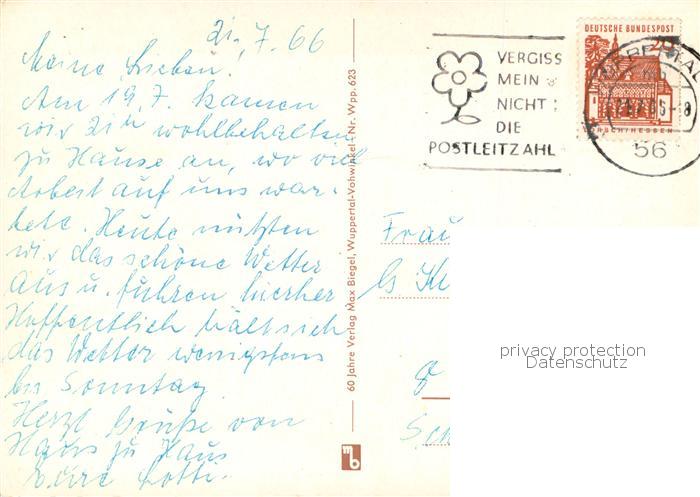 21.7.66
Meine Lieben!
Am 19.7. kamen
wir 21 wohlbehalten
zu Hause an, wo viel
Arbeit auf uns war-
tete. Heute nützten
wir das schöne Wetter
aus u. fuhren hierher
Hoffentlich hält sich
das Wetter wenigstens
bis Sonntag
Herzl Grüße von
Haus zu Haus
Eure Lotti.
60 Jahre Verlag Max Biegel, Wuppertal-Vohwinkel · Nr. Wpp. 623
mb
VERGISS
MEIN
NICHT
DIE
POSTLEITZAHL
DEUTSCHE BUNDESPOST
20
LORSCH/HESSEN
56
Frau
privacy protection
Datenschutz